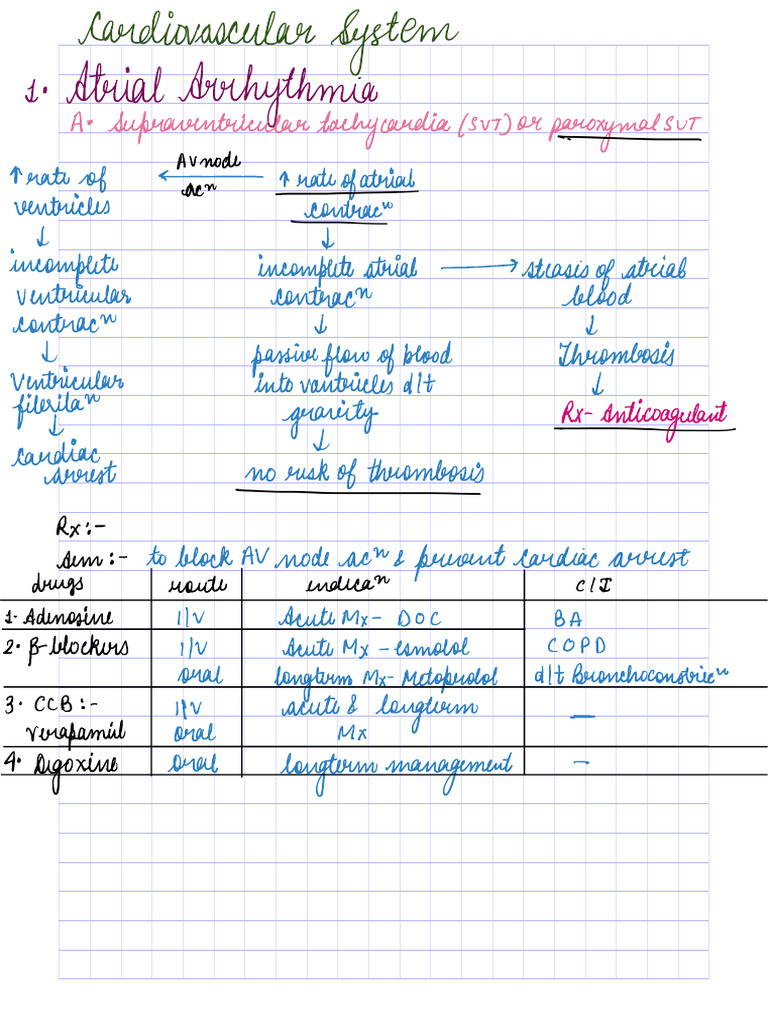 Cardiovascular System
1. Atrial Arrhythmia
A. Supraventricular tachycardia (SVT) or paroxymal SVT
↑ rate of ventricles
← AV node acⁿ
↑ rate of atrial contracⁿ
↓
incomplete ventricular contracⁿ
↓
Ventricular filerilaⁿ
↓
cardiac arrest
↓
incomplete atrial contracⁿ
→ stasis of atrial blood
↓
passive flow of blood into vantricles d/t gravity
↓
no risk of thrombosis
↓
Thrombosis
↓
Rx- Anticoagulant
Rx:-
Aim:- to block AV node acⁿ & prevent cardiac arrest
drugs route indicaⁿ C/I
1. Adenosine I/V Acute Mx- DOC BA
2. β-blockers I/V Acute Mx - esmolol COPD
oral longterm Mx- Metoperolol d/t Bronchoconstricⁿ
3. CCB:- I/V acute & longterm —
Verapamil oral Mx
4. Digoxine oral longterm management -